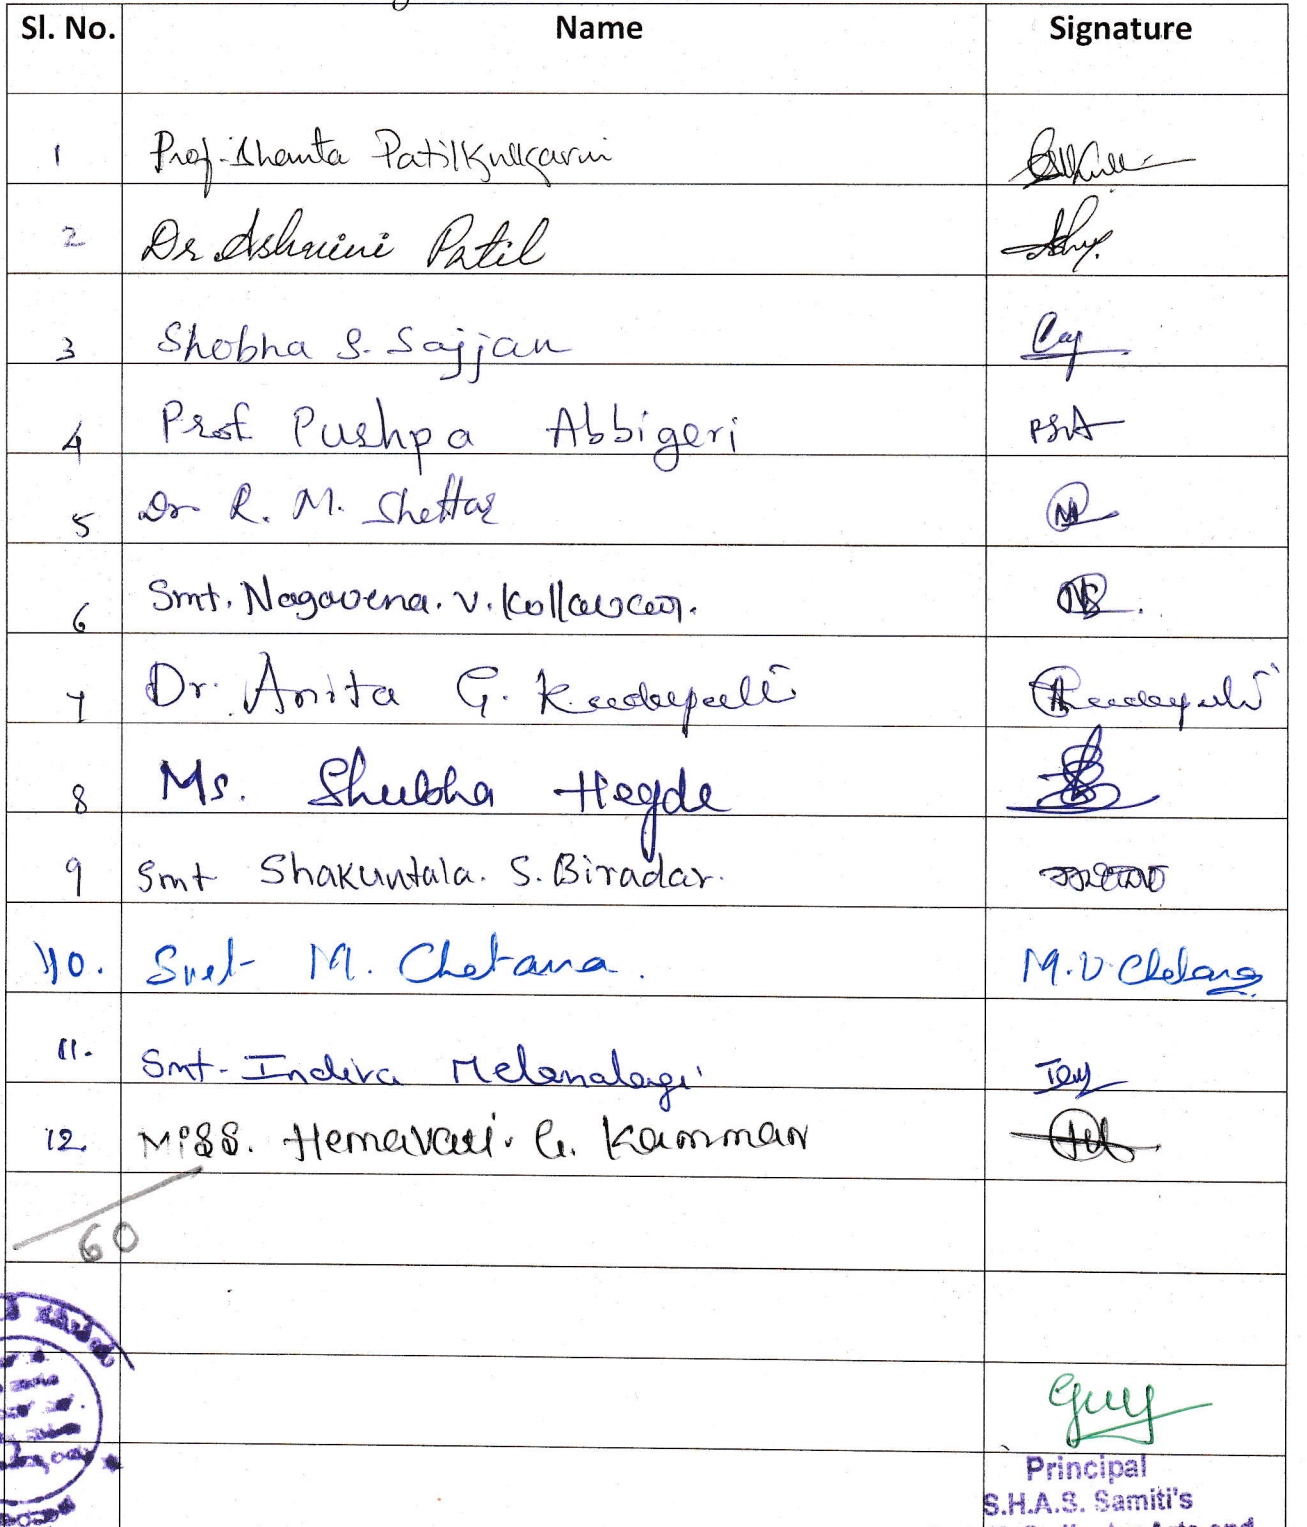 Sl. No. Name Signature
1 Prof. Shanta PatilKulkarni
2 Dr Ashwini Patil
3 Shobha S. Sajjan
4 Prof Pushpa Abbigeri PSA
5 Dr R. M. Shettar
6 Smt. Nagavena. V.
7 Dr. Anita G.
8 Ms. Shubha Hegde
9 Smt Shakuntala. S. Biradar.
10. Smt M. Chetana. M.V. Chetana
11. Smt- Indira
12. Miss. Hemavati. G. Kamman
60
Principal
S.H.A.S. Samiti's